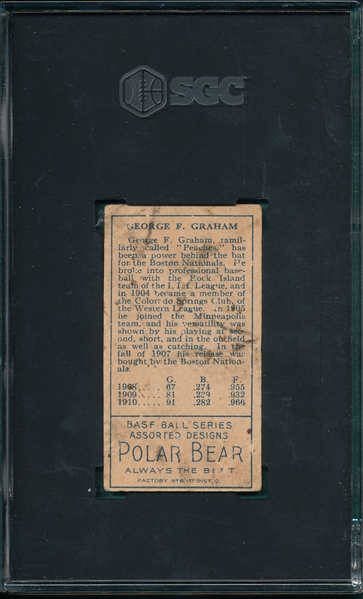 SGC
GEORGE F. GRAHAM
George F. Graham, famil-
iarly called "Peaches," has
been a power behind the
bat for the Boston Nationals. He
broke into professional base-
ball with the Rock Island
team of the I. I. I. League, and
in 1904 became a member of
the Colorado Springs Club, of
the Western League. In 1905
he joined the Minneapolis
team, and his versatility was
shown by his playing at sec-
ond, short, and in the outfield
as well as catching. In the
fall of 1907 his release was
bought by the Boston Nation-
als.
G. B. F.
1908..... 67 .274 .955
1909..... 81 .239 .932
1910..... 91 .282 .966
BASE BALL SERIES
ASSORTED DESIGNS
POLAR BEAR
ALWAYS THE BEST.
FACTORY No 6, 1ST DIST. O.